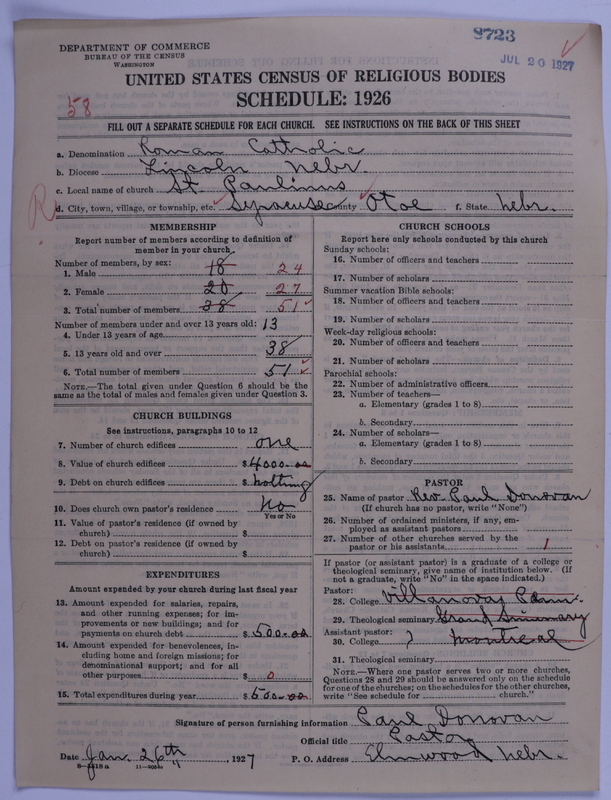 8723
JUL 20 1927
DEPARTMENT OF COMMERCE
BUREAU OF THE CENSUS
WASHINGTON
UNITED STATES CENSUS OF RELIGIOUS BODIES
58
SCHEDULE: 1926
FILL OUT A SEPARATE SCHEDULE FOR EACH CHURCH. SEE INSTRUCTIONS ON THE BACK OF THIS SHEET
a. Denomination Roman Catholic
b. Diocese Lincoln Nebr.
c. Local name of church St. Paulinus
d. City, town, village, or township, etc. Syracuse County Otoe f. State Nebr.
MEMBERSHIP
Report number of members according to definition of
member in your church.
Number of members, by sex:
1. Male 18 24
2. Female 20 27
3. Total number of members 38 51
Number of members under and over 13 years old:
4. Under 13 years of age 13
5. 13 years old and over 38
6. Total number of members 51
NOTE.—The total given under Question 6 should be the
same as the total of males and females given under Question 3.
CHURCH BUILDINGS
See instructions, paragraphs 10 to 12
7. Number of church edifices one
8. Value of church edifices $4000.00
9. Debt on church edifices $ nothing
10. Does church own pastor's residence No
Yes or No
11. Value of pastor's residence (if owned by
church) $
12. Debt on pastor's residence (if owned by
church) $
EXPENDITURES
Amount expended by your church during last fiscal year
13. Amount expended for salaries, repairs,
and other running expenses; for im-
provements or new buildings; and for
payments on church debt $500.00
14. Amount expended for benevolences, in-
cluding home and foreign missions; for
denominational support; and for all
other purposes $ 0
15. Total expenditures during year $500.00
CHURCH SCHOOLS
Report here only schools conducted by this church
Sunday schools:
16. Number of officers and teachers
17. Number of scholars
Summer vacation Bible schools:
18. Number of officers and teachers
19. Number of scholars
Week-day religious schools:
20. Number of officers and teachers
21. Number of scholars
Parochial schools:
22. Number of administrative officers
23. Number of teachers—
a. Elementary (grades 1 to 8)
b. Secondary
24. Number of scholars—
a. Elementary (grades 1 to 8)
b. Secondary
PASTOR
25. Name of pastor Rev. Paul Donovan
(If church has no pastor, write "None")
26. Number of ordained ministers, if any, em-
ployed as assistant pastors
27. Number of other churches served by the
pastor or his assistants 1
If pastor (or assistant pastor) is a graduate of a college or
theological seminary, give name of institution below. (If
not a graduate, write "No" in the space indicated.)
Pastor:
28. College Villanova, Penn.
29. Theological seminary Grand Siminary
Assistant pastor:
30. College ) Montreal
31. Theological seminary
NOTE.—Where one pastor serves two or more churches,
Questions 28 and 29 should be answered only on the schedule
for one of the churches; on the schedules for the other churches,
write "See schedule for church."
Signature of person furnishing information Paul Donovan
Official title Pastor
Date Jan. 26th, 1927 P. O. Address Elmwood Nebr.